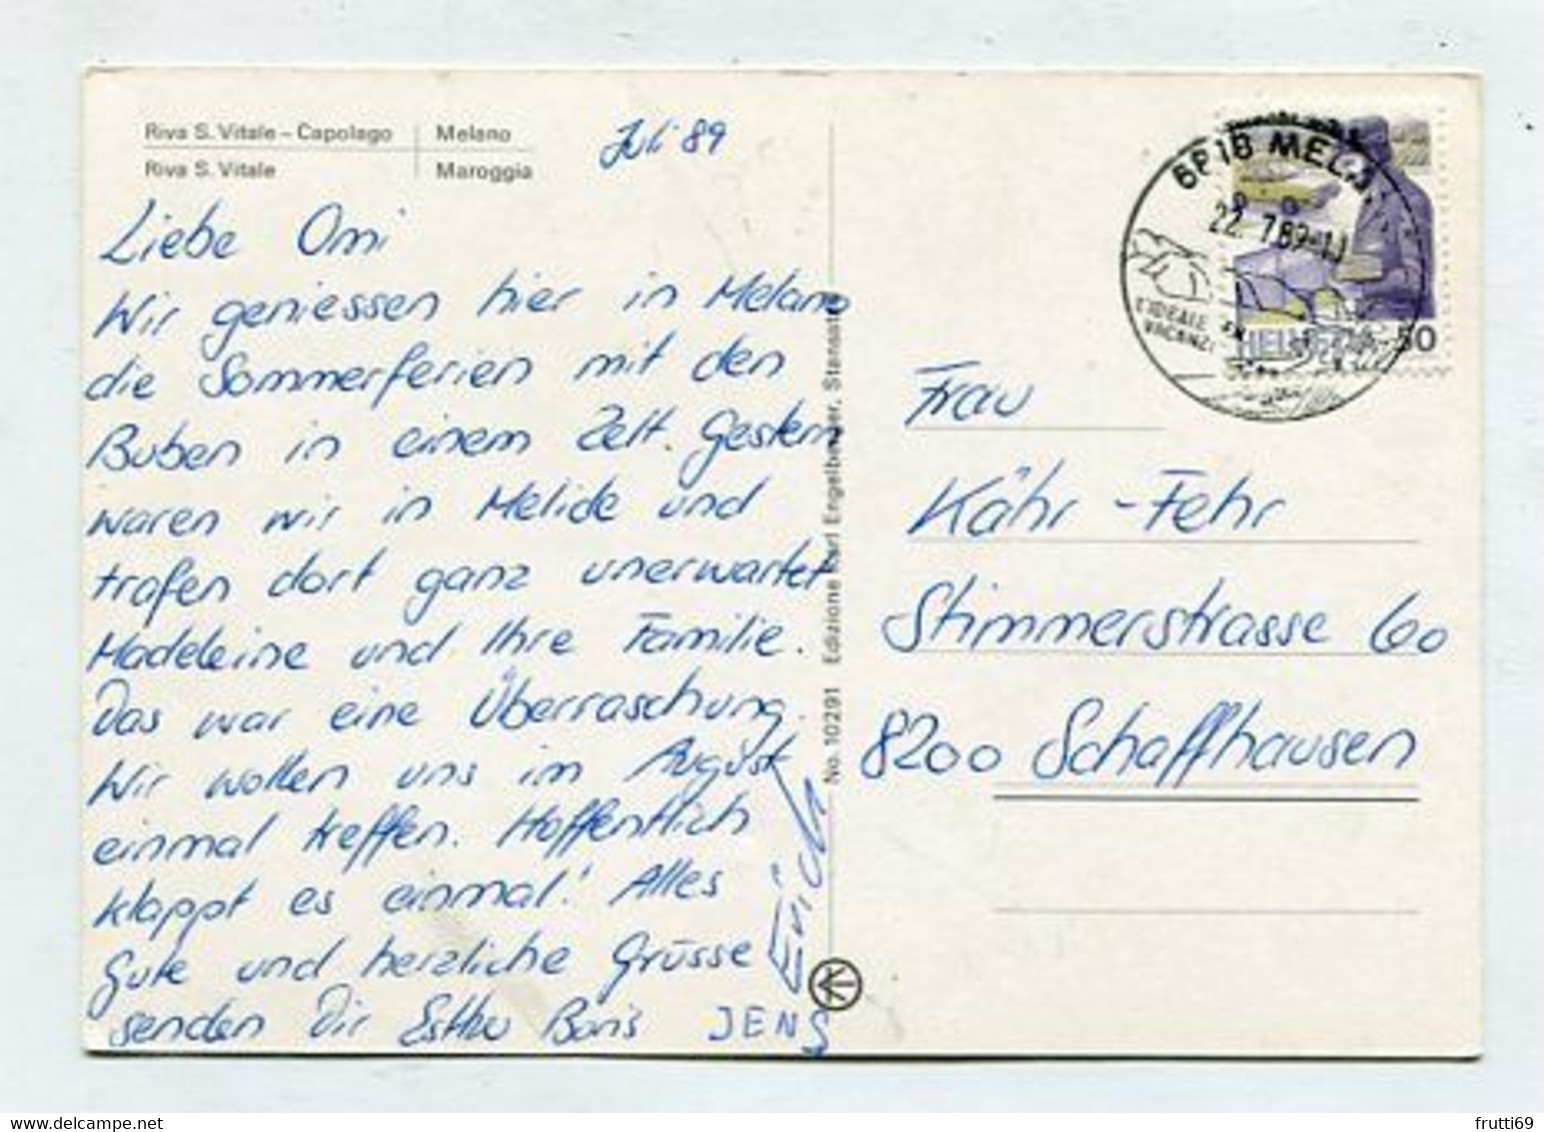 Riva S. Vitale – Capolago | Melano
Riva S. Vitale | Maroggia
Juli 89
Liebe Omi
Wir geniessen hier in Melano
die Sommerferien mit den
Buben in einem Zelt. Gestern
waren wir in Melide und
trafen dort ganz unerwartet
Madeleine und Ihre Familie.
Das war eine Überraschung.
Wir wollen uns im August
einmal treffen. Hoffentlich
klappt es einmal! Alles
Gute und herzliche Grüsse
senden Dir Esther Boris JENS
Erich
No. 10291 Edizione Karl Engelberger, Stansstad
22. 7.89-11
L'IDEALE
VACANZE
HELVETIA 50
Frau
Kähr-Fehr
Stimmerstrasse 60
8200 Schaffhausen
frutti69